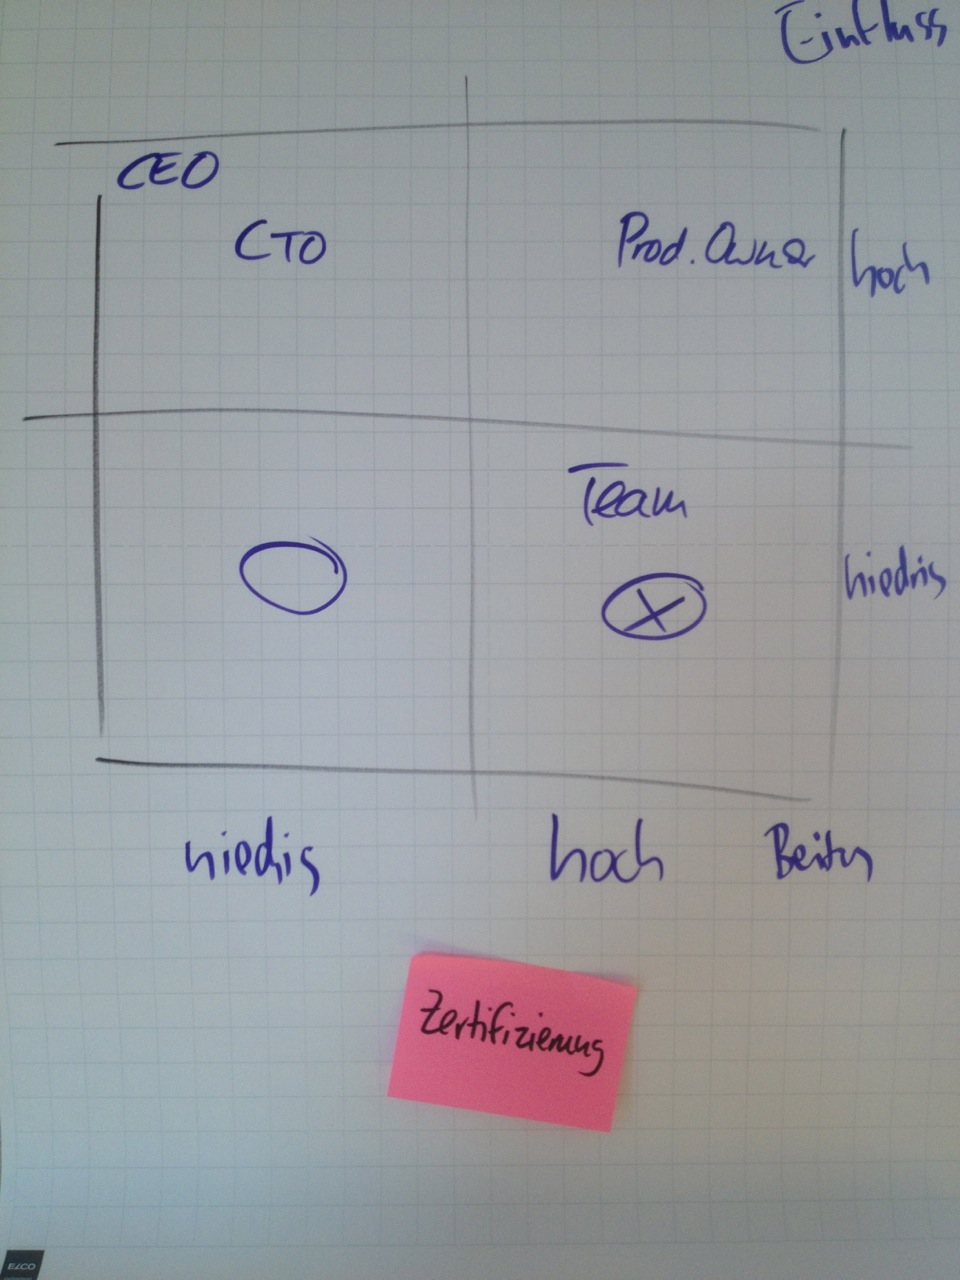 Einfluss
CEO
CTO
Prod. Owner
hoch
Team
X
niedrig
niedrig
hoch
Zertifizierung
ELCO